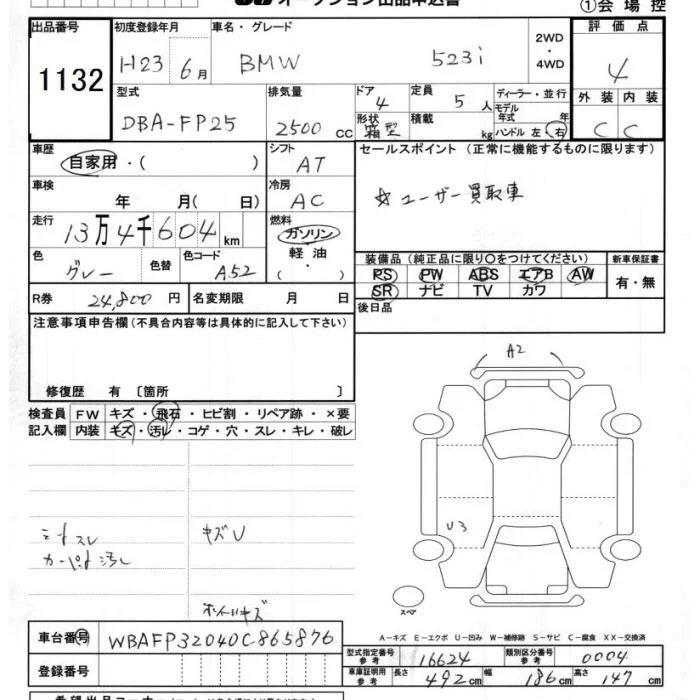 オークション出品申込書
①会場控
出品番号 初度登録年月 車名・グレード 2WD・4WD 評価点
1132 H23 6月 BMW 523i 4
型式 排気量 ドア 4 定員 5人 ディーラー・並行 外装 内装
DBA-FP25 2500cc 形状 箱型 積載 kg モデル年式 年 ハンドル 左・右 C C
車歴 自家用・( ) シフト AT セールスポイント (正常に機能するものに限ります)
車検 年 月( 日) 冷房 AC ☆ユーザー買取車
走行 13万4千604km 燃料 ガソリン
軽油
・( )
色 グレー 色替 色コード A52 装備品(純正品に限り○をつけてください) 新車保証書
PS PW ABS エアB AW 有・無
SR ナビ TV カワ
R券 24,800円 名変期限 月 日 後日品
注意事項申告欄(不具合内容等は具体的に記入して下さい)
修復歴 有 〔箇所 〕
検査員 FW キズ・飛石・ヒビ割・リペア跡・×要
記入欄 内装 キズ・汚レ・コゲ・穴・スレ・キレ・破レ
A2
U3
シートスレ キズU
カーペット汚レ
ホイールキズ
スペア
A-キズ E-エクボ U-凹み W-補修跡 S-サビ C-腐食 XX-交換済
車台番号 WBAFP32040C865876
型式指定番号 参考 16624 類別区分番号 参考 0004
登録番号
車庫証明用 参考 長さ 492cm 幅 186cm 高さ 147cm